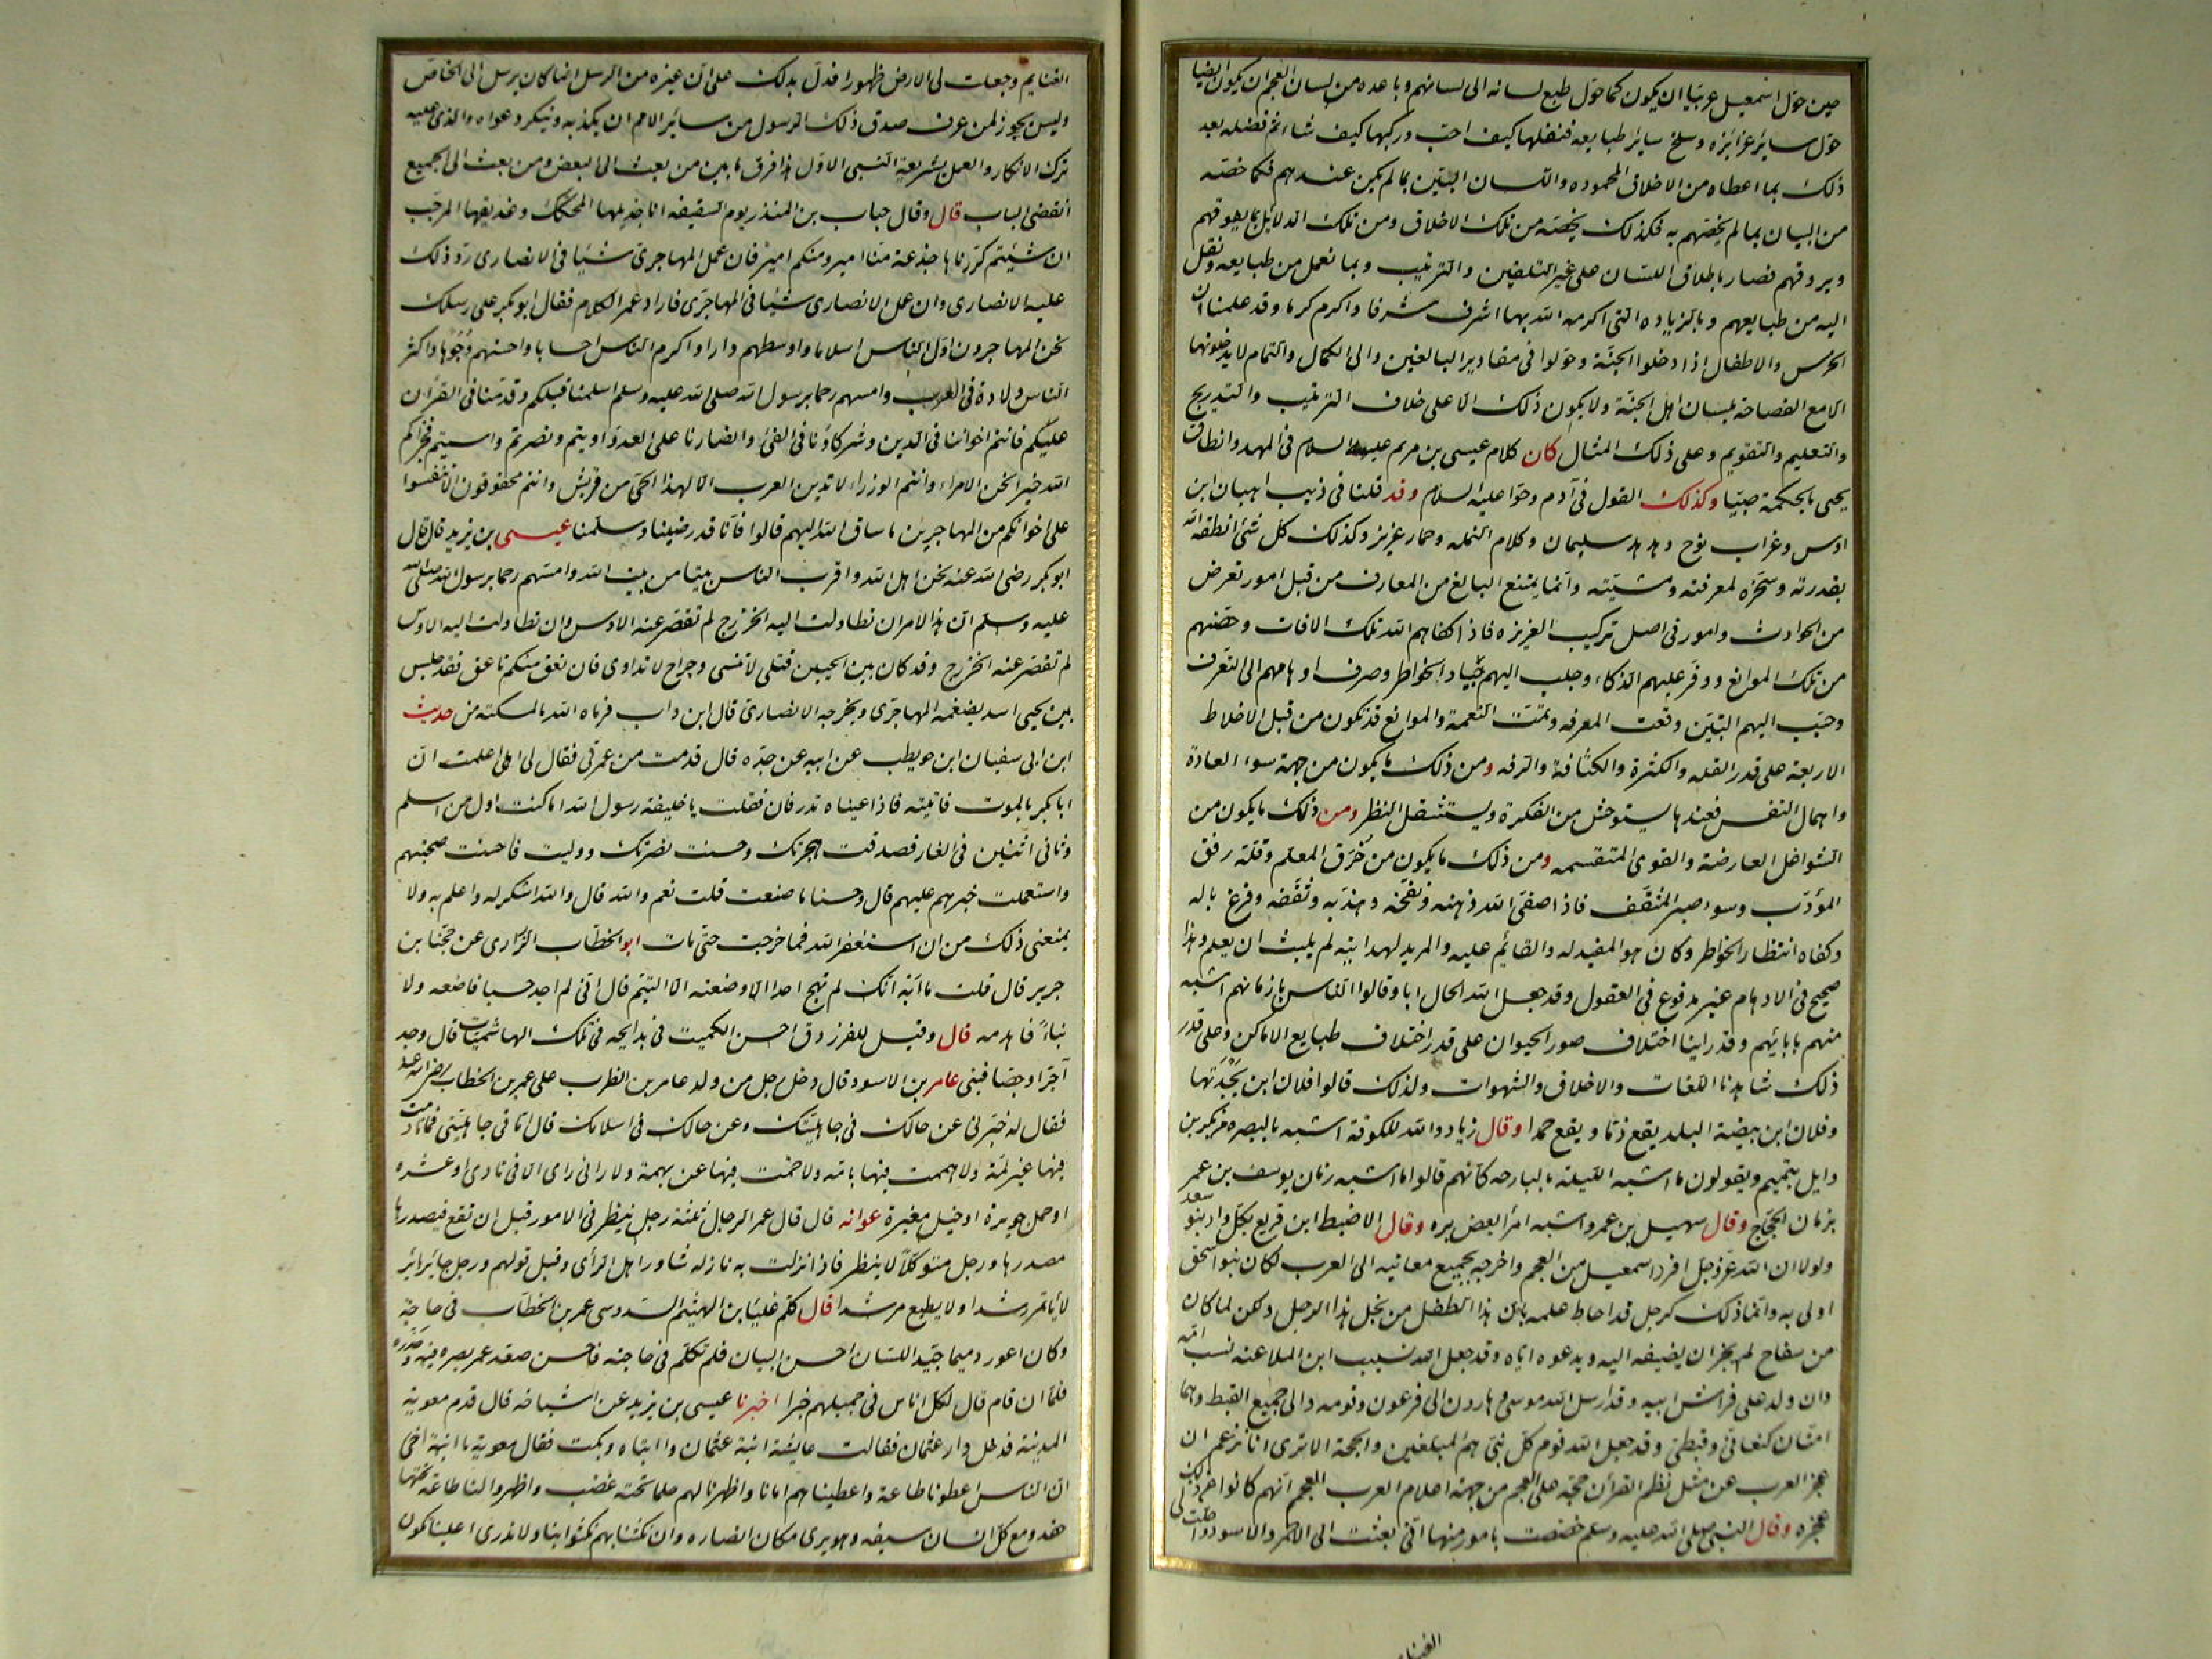 حين حوّل اسمعيل عربيّا ان يكون كما حوّل طبع لسانه الى لسانهم وباعده من لسان العجم ان يكون ايضا
حوّل ساير غرايزه وسلخ ساير طبايعه فنقلها كيف احبّ وركبها كيف شاء ثم فضله بعد
ذلك بما اعطاه من الاخلاق المحموده واللسان البيّن بما لم يكن عندهم فكما خصّه
من البيان بما لم يخصّهم به فكذلك يخصّه من تلك الاخلاق ومن تلك الدلائل بما يفوقهم
ويروقهم فصار باطلاق اللسان على غير التلقين والترتيب وبما نعمل من طبايعه ونقل
اليه من طبايعهم وبالزياده التى اكرمه الله بها اشرف شرفا واكرم كرما وقد علمنا ان
الخرس والاطفال اذا دخلوا الجنّة وحوّلوا فى مقادير البالغين والى الكمال والتمام لا يدخلونها
الا مع الفصاحة بلسان اهل الجنّة ولا يكون ذلك الا على خلاف الترتيب والتدريج
والتعليم والتقويم وعلى ذلك المثال كان كلام عيسى بن مريم عليه السلام فى المهد وانطاق
يحيى بالحكمة صبيّا وكذلك القول فى آدم وحوّا عليه السلام وقد قلنا فى ذيب اهبان ابن
اوس وغراب نوح وهدهد سليمان وكلام النمله وحمار عزيز وكذلك كل شئ انطقه الله
بقدرته وسخّره لمعرفته ومشيّته وانّما يمتنع البالغ من المعارف من قبل امور تعرض
من الحوادث وامور فى اصل تركيب الغريزه فاذا كفاهم الله تلك الافات وحصّنهم
من تلك الموانع ووفر عليهم الذكاء وجلب اليهم جياد الخواطر وصرف اوهامهم الى التعرف
وحبّب اليهم التبيّن وقعت المعرفه وتمّت النعمة والموانع قد تكون من قبل الاخلاط
الاربعة على قدر القله والكثرة والكثافة والرقه ومن ذلك ما يكون من جهة سوء العادة
واهمال النفس فعندها يستوحش من الفكرة ويستثقل النظر ومن ذلك ما يكون من
الشواغل العارضة والقوى المتقسمه ومن ذلك ما يكون من خُرق المعلّم وقلّة رفق
المؤدّب وسوا صبر المثقّف فاذا صفّى الله ذهنه ونقّحه وهذّبه وثقّفه وفرغ باله
وكفاه انتظار الخواطر وكان هو المفيد له والقائم عليه والمريد لهدايته لم يلبث ان يعلم وهذا
صحيح فى الاوهام غير مدفوع فى العقول وقد جعل الله الخال ابا وقالوا الناس بازمانهم اشبه
منهم بابائهم وقد راينا اختلاف صور الحيوان على قدر اختلاف طبايع الاماكن وعلى قدر
ذلك شاهدنا اللغات والاخلاق والشهوات ولذلك قالوا فلان ابن بُجدَتها
وفلان ابن بيضة البلد يقع ذمّا ويقع حمدا وقال زياد والله للكوفة اشبه بالبصره من بكر بن
وايل بتميم ويقولون ما اشبه الليلة بالبارحه كأنهم قالوا ما اشبه زمان يوسف بن عمر
بزمان الحجّاج وقال سهيل بن عمرو اشبه امرأ بعض بزه وقال الاضبط ابن قريع بكلّ واد بنو سعد
ولولا ان الله عزّ وجل افرد اسمعيل من العجم واخرجه بجميع معانيه الى العرب لكان بنو اسحق
اولى به وانّما ذلك كرجل قد احاط علمه بان هذا الطفل من نجل هذا الرجل ولكن لما كان
من سفاح لم يجز ان يضيفه اليه ويدعوه اياه وقد جعل الله نسب ابن الملاعنه نسب امّه
وان ولد على فراش ابيه وقد ارسل الله موسى وهارون الى فرعون وقومه والى جميع القبط وهما
امّتان كنعانىّ وقبطىّ وقد جعل الله قوم كلّ نبىّ هم المبلغين والحجة الا ترى انا نزعم ان
عجز العرب عن مثل نظم القرآن حجّة على العجم من جهة اعلام العرب العجم انّهم كانوا عن ذلك
عجزه وقال النبى صلى الله عليه وسلم خصصت بامور منها انّى بعثت الى الاحمر والاسود واحلّت لى
الغنايم
الغنايم وجعلت لى الارض طهورا فدلّ بذلك على انّ غيره من الرسل انما كان يرسل الى الخاصّ
وليس يجوز لمن عرف صدق ذلك الرسول من سائر الامم ان يكذبه وينكر دعواه والذى عليه
ترك الانكار والعمل بشريعة النبى الاوّل هذا فرق ما بين من بعث الى البعض ومن بعث الى الجميع
انقضى الباب قال وقال حباب بن المنذر يوم السقيفه انا جذيلها المحكّك وعذيقها المرجّب
ان شيتم كررناها جذعة منّا امير ومنكم امير فان عمل المهاجرىّ شيئا فى الانصارى ردّ ذلك
عليه الانصارى وان عمل الانصارى شيئا فى المهاجرى فاراد عمر الكلام فقال ابو بكر على رسلك
نحن المهاجرون اوّل الناس اسلاما واوسطهم دارا واكرم الناس احسابا واحسنهم وُجوها واكثر
الناس ولادة فى العرب وامسهم رحما برسول الله صلى الله عليه وسلم اسلمنا قبلكم وقدّمنا فى القرآن
عليكم فانتم اخواننا فى الدين وشركاؤنا فى الفئ وانصارنا على العدوّ اويتم ونصرتم واسيتم فجزاكم
الله خيرا نحن الامراء وانتم الوزراء لا تدين العرب الا لهذا الحىّ من قريش وانتم محقوقون الا تنفسوا
على اخوانكم من المهاجرين ما ساق الله اليهم قالوا فانّا قد رضينا وسلّمنا عيسى بن يزيد قال قال
ابو بكر رضى الله عنه نحن اهل الله واقرب الناس بيتا من بيت الله وامسّهم رحما برسول الله صلى الله
عليه وسلم ان هذا الامر ان تطاولت اليه الخزرج لم تقصر عنه الاوس وان تطاولت اليه الاوس
لم تقصر عنه الخزرج وقد كان بين الحيين قتلى لا تنسى وجراح لا تداوى فان نعق منكم ناعق فقد جلس
بين لحيى اسد يضغمه المهاجرى ويجرحه الانصارى قال ابن داب فرماه الله بالمسكته من حديث
ابن ابى سفيان ابن حويطب عن ابيه عن جدّه قال قدمت من عمرتى فقال لى اهلى اعلمت انّ
ابا بكر بالموت فاتيته فاذا عيناه تذرفان فقلت يا خليفة رسول الله اما كنت اول من اسلم
وثانى اثنين فى الغار فصدقت هجرتك وحسنت نصرتك ووليت فاحسنت صحبتهم
واستعملت خيرهم عليهم قال وحسنا ما صنعت قلت نعم والله قال والله اشكر له واعلم به ولا
يمنعنى ذلك من ان استغفر الله فما خرجت حتّى مات ابو الخطّاب الزّرارى عن حجنا بن
جرير قال قلت يا ابه انك لم تهج احدا الا وضعته الا التيم قال انّى لم اجد حسبا فاضعه ولا
بناءً فاهدمه قال وقيل للفرزدق احسن الكميت فى مدايحه فى تلك الهاشميّات قال وجد
آجرّا وجصّا فبنى عامر بن الاسود قال دخل رجل من ولد عامر بن الظرب على عمر بن الخطاب رضى الله عنه
فقال له خبّرنى عن حالك فى جاهليّتك وعن حالك فى اسلامك قال امّا فى جاهليّتى فما نادمت
فيها غير لمّة ولا هممت فيها بامّه ولا خمت فيها عن بهمة ولا رانى راى الا فى نادى او عشيره
او حمل جريرة او خيل مغيرة عوانه قال قال عمر الرجال ثلثة رجل ينظر فى الامور قبل ان تقع فيصدرها
مصدرها ورجل متوكّلا لا ينظر فاذا نزلت به نازله شاور اهل الرّأى وقبل قولهم ورجل حائر بائر
لا يأتمر رشدا ولا يطيع مرشدا قال كلّم علبا بن الهيثم السّدوسى عمر بن الخطاب فى حاجة
وكان اعور دميما جيّد اللسان احسن البيان فلم تكلّم فى حاجته فاحسن صعّد عمر بصره فيه وحدره
فلمّا ان قام قال لكلّ اناس فى جميلهم خبرا اخبرنا عيسى بن يزيد عن اشياخه قال قدم معوية
المدينة فدخل دار عثمان فقالت عايشة ابنة عثمان وا ابتاه وبكت فقال معوية يا ابنة اخى
انّ الناس اعطونا طاعة واعطيناهم امانا واظهرنا لهم حلما تحته غضب واظهروا لنا طاعة تحتها
حقد ومع كلّ انسان سيفه وهو يرى مكان انصاره وان نكثنا بهم نكثوا بنا ولا ندرى اعلينا تكون